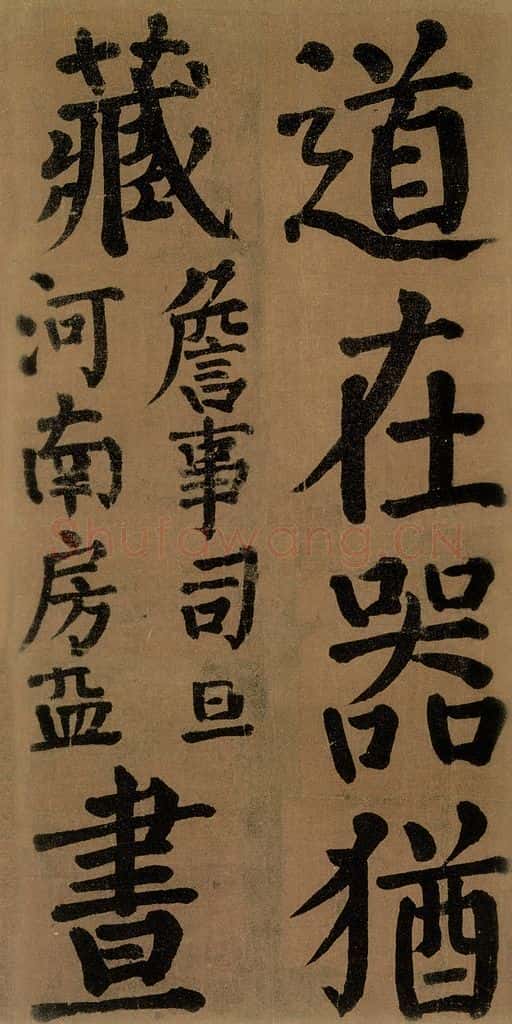 道在器猶
藏
詹事司旦
河南房益
晝
Shufawang.CN